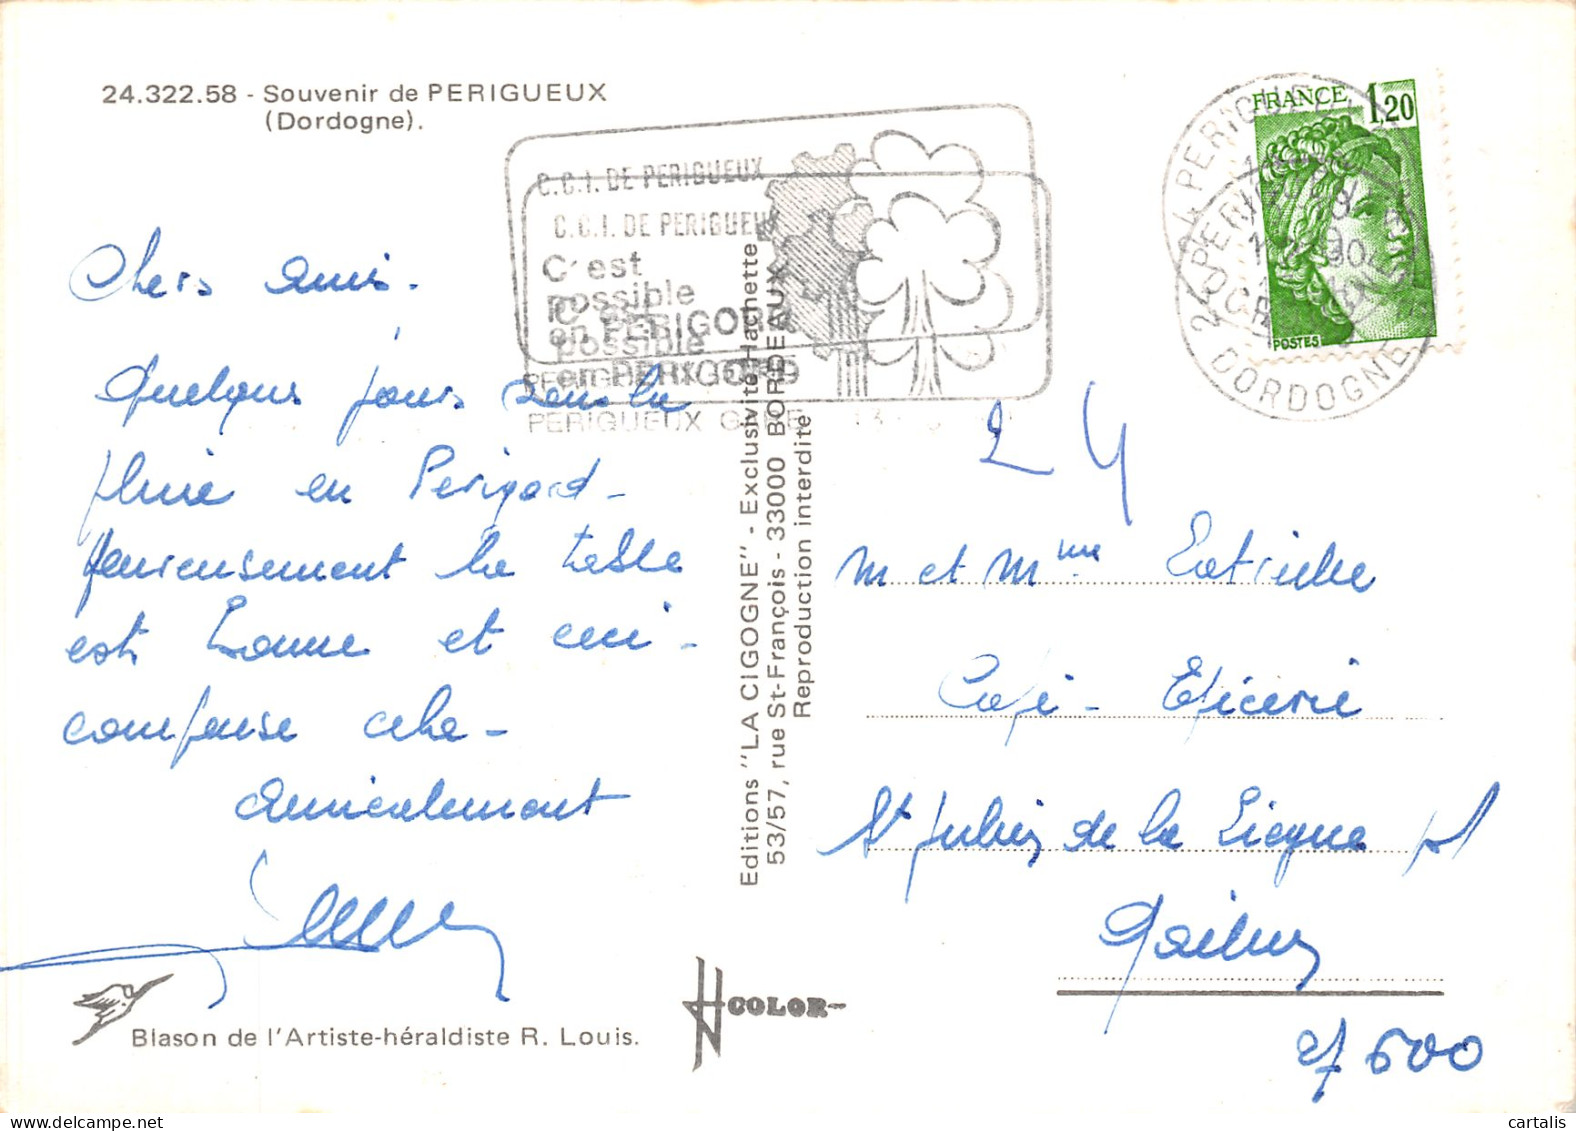 24.322.58 - Souvenir de PERIGUEUX
(Dordogne).
C.C.I. DE PERIGUEUX
C.C.I. DE PERIGUEUX
C'est
possible
en PERIGORD
C'est
possible
en PERIGORD
PERIGUEUX GARE
PERIGUEUX GARE
FRANCE 1,20
POSTES
24 PERIGUEUX
24 PERIGUEUX
DORDOGNE
Chers amis.
Quelques jours sous la
pluie en Perigord -
heureusement la table
est bonne et ceci -
compense cela -
Amicalement
Editions "LA CIGOGNE" - Exclusivité Hachette
53/57, rue St-François - 33000 BORDEAUX
Reproduction interdite
24
M et Mme
Café - Epicerie
St Julien de la Liegue p/
Gaillon
27600
COLOR
Blason de l'Artiste-héraldiste R. Louis.
cartalis.com